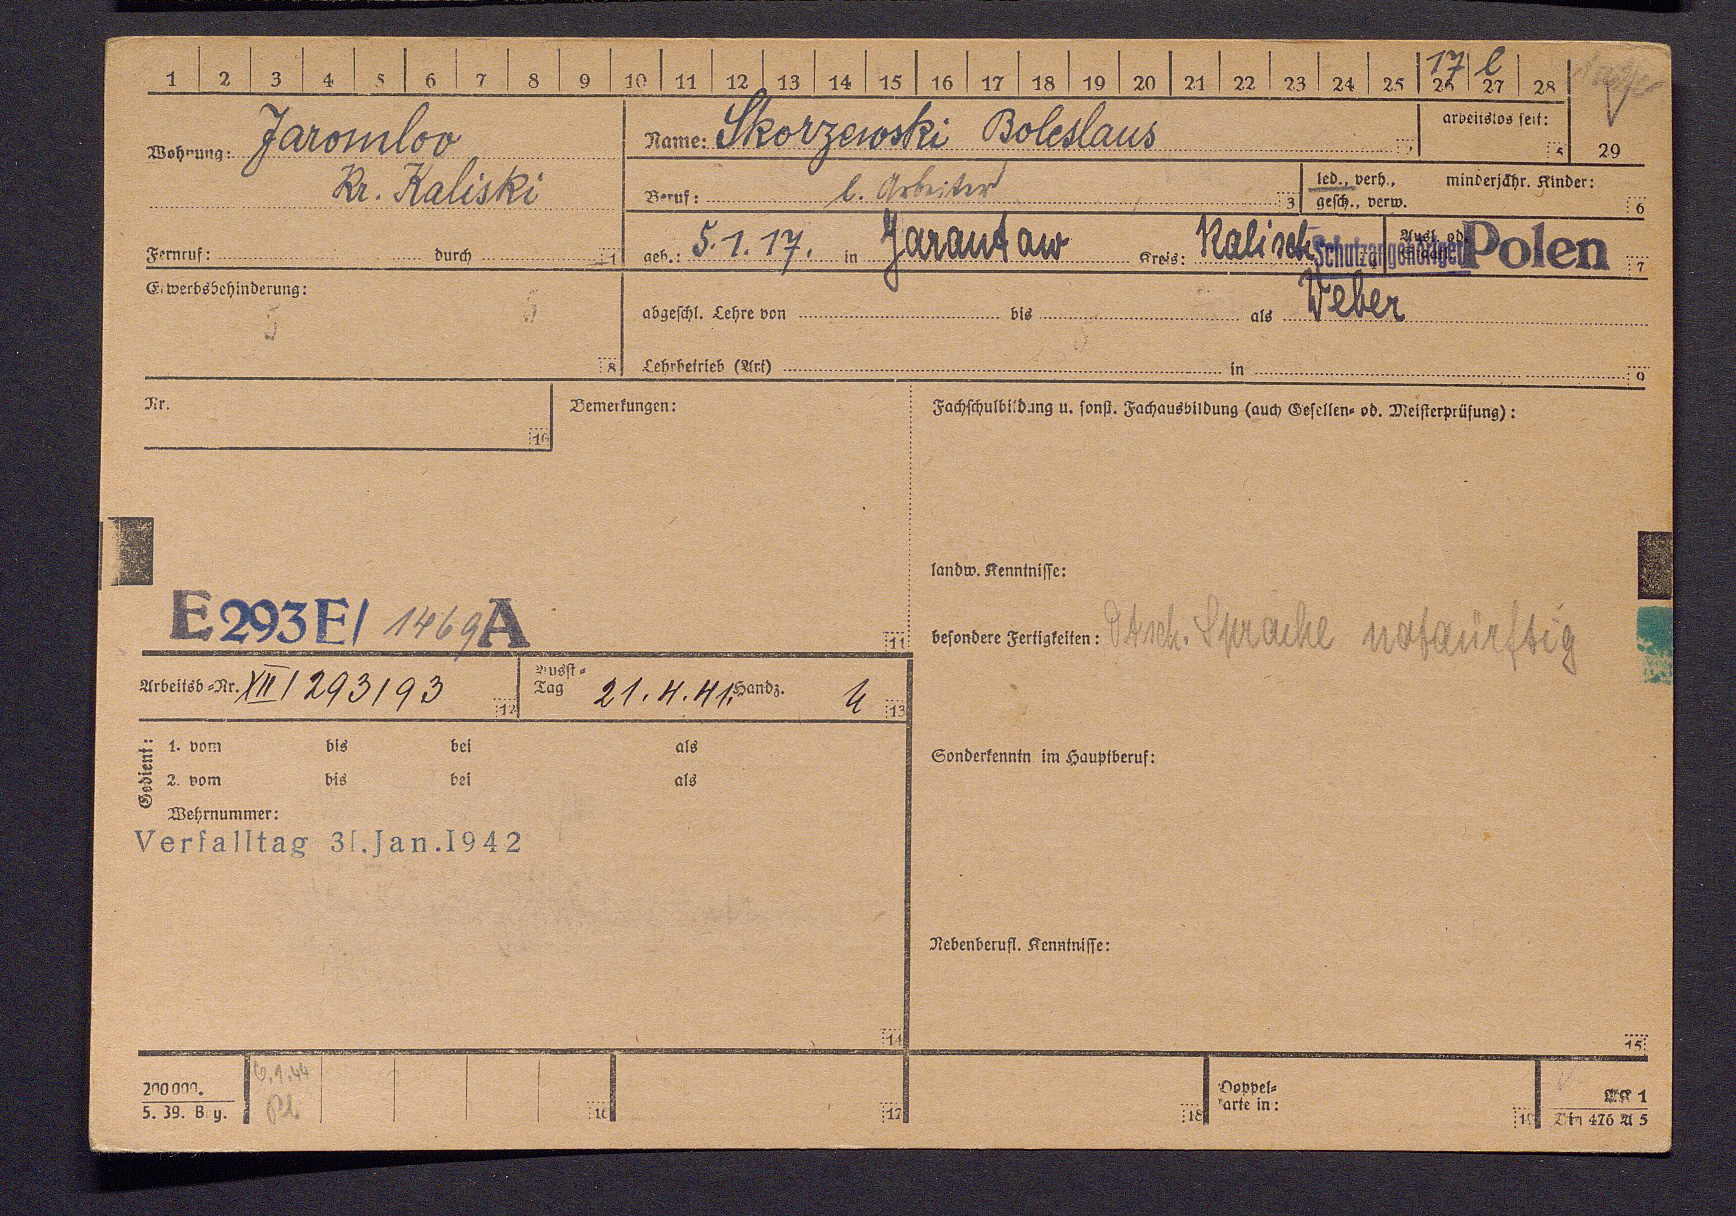 1 2 3 4 5 6 7 8 9 10 11 12 13 14 15 16 17 18 19 20 21 22 23 24 25 26 27 28
17 l
Wohnung: Jaromlov
Kr. Kaliski
Fernruf: durch 1
Name: Skorzewski Boleslaus 2
arbeitslos seit: 5
29
Beruf: l. Arbeiter 3
led., verh.,
gesch., verw.
minderjähr. Kinder: 6
geb.: 5.1.17. in Jarantaw Kreis: Kalisch
Schutzangehöriger Polen 7
Erwerbsbehinderung:
8
abgeschl. Lehre von bis als Weber
Lehrbetrieb (Art) in 9
Nr. 10
Bemerkungen:
Fachschulbildung u. sonst. Fachausbildung (auch Gesellen- od. Meisterprüfung):
landw. Kenntnisse:
E 293 E/ 1469 A 11
besondere Fertigkeiten: Dtsch. Sprache notdürftig
Arbeitsb-Nr. XII/293/93 12
Ausst-
Tag 21.4.41. Handz. 13
Gedient:
1. vom bis bei als
2. vom bis bei als
Wehrnummer:
Verfalltag 31.Jan.1942
Sonderkenntn im Hauptberuf:
Nebenberufl. Kenntnisse:
14
15
200000.
5. 39. B y.
6.1.44
16
17
18
Doppel-
karte in:
19
AK 1
Din 476 A 5